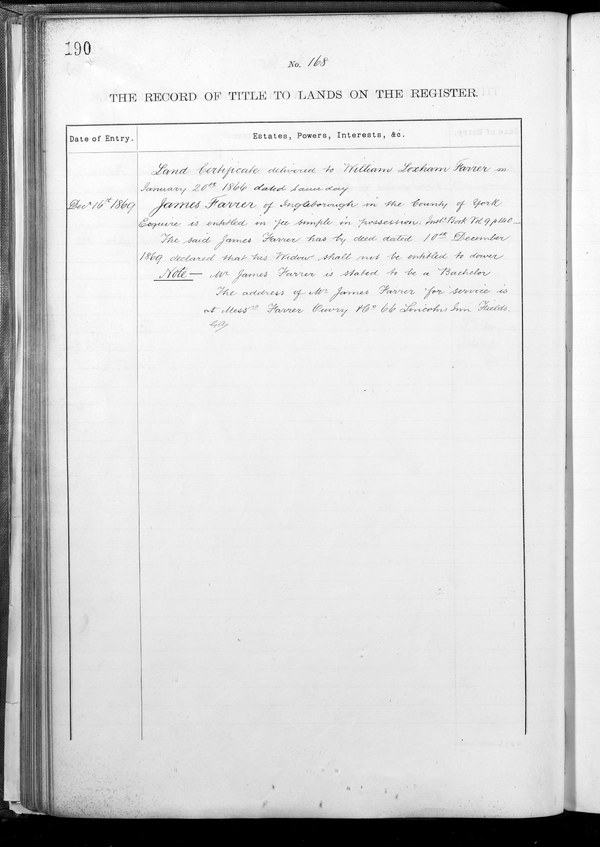 190
No. 168
THE RECORD OF TITLE TO LANDS ON THE REGISTER.
Date of Entry.
Estates, Powers, Interests, &c.
Land Certificate delivered to William Loxham Farrer on
January 20th 1866 dated same day
Decr 16th 1869
James Farrer of Ingleborough in the County of York
Esquire is entitled in fee simple in possession. Inst. Book Vol 9 p 140
The said James Farrer has by deed dated 10th December
1869 declared that his Widow shall not be entitled to dower
Note — Mr James Farrer is stated to be a Bachelor
The address of Mr James Farrer for service is
at Messrs Farrer Ouvry & Co 66 Lincolns Inn Fields